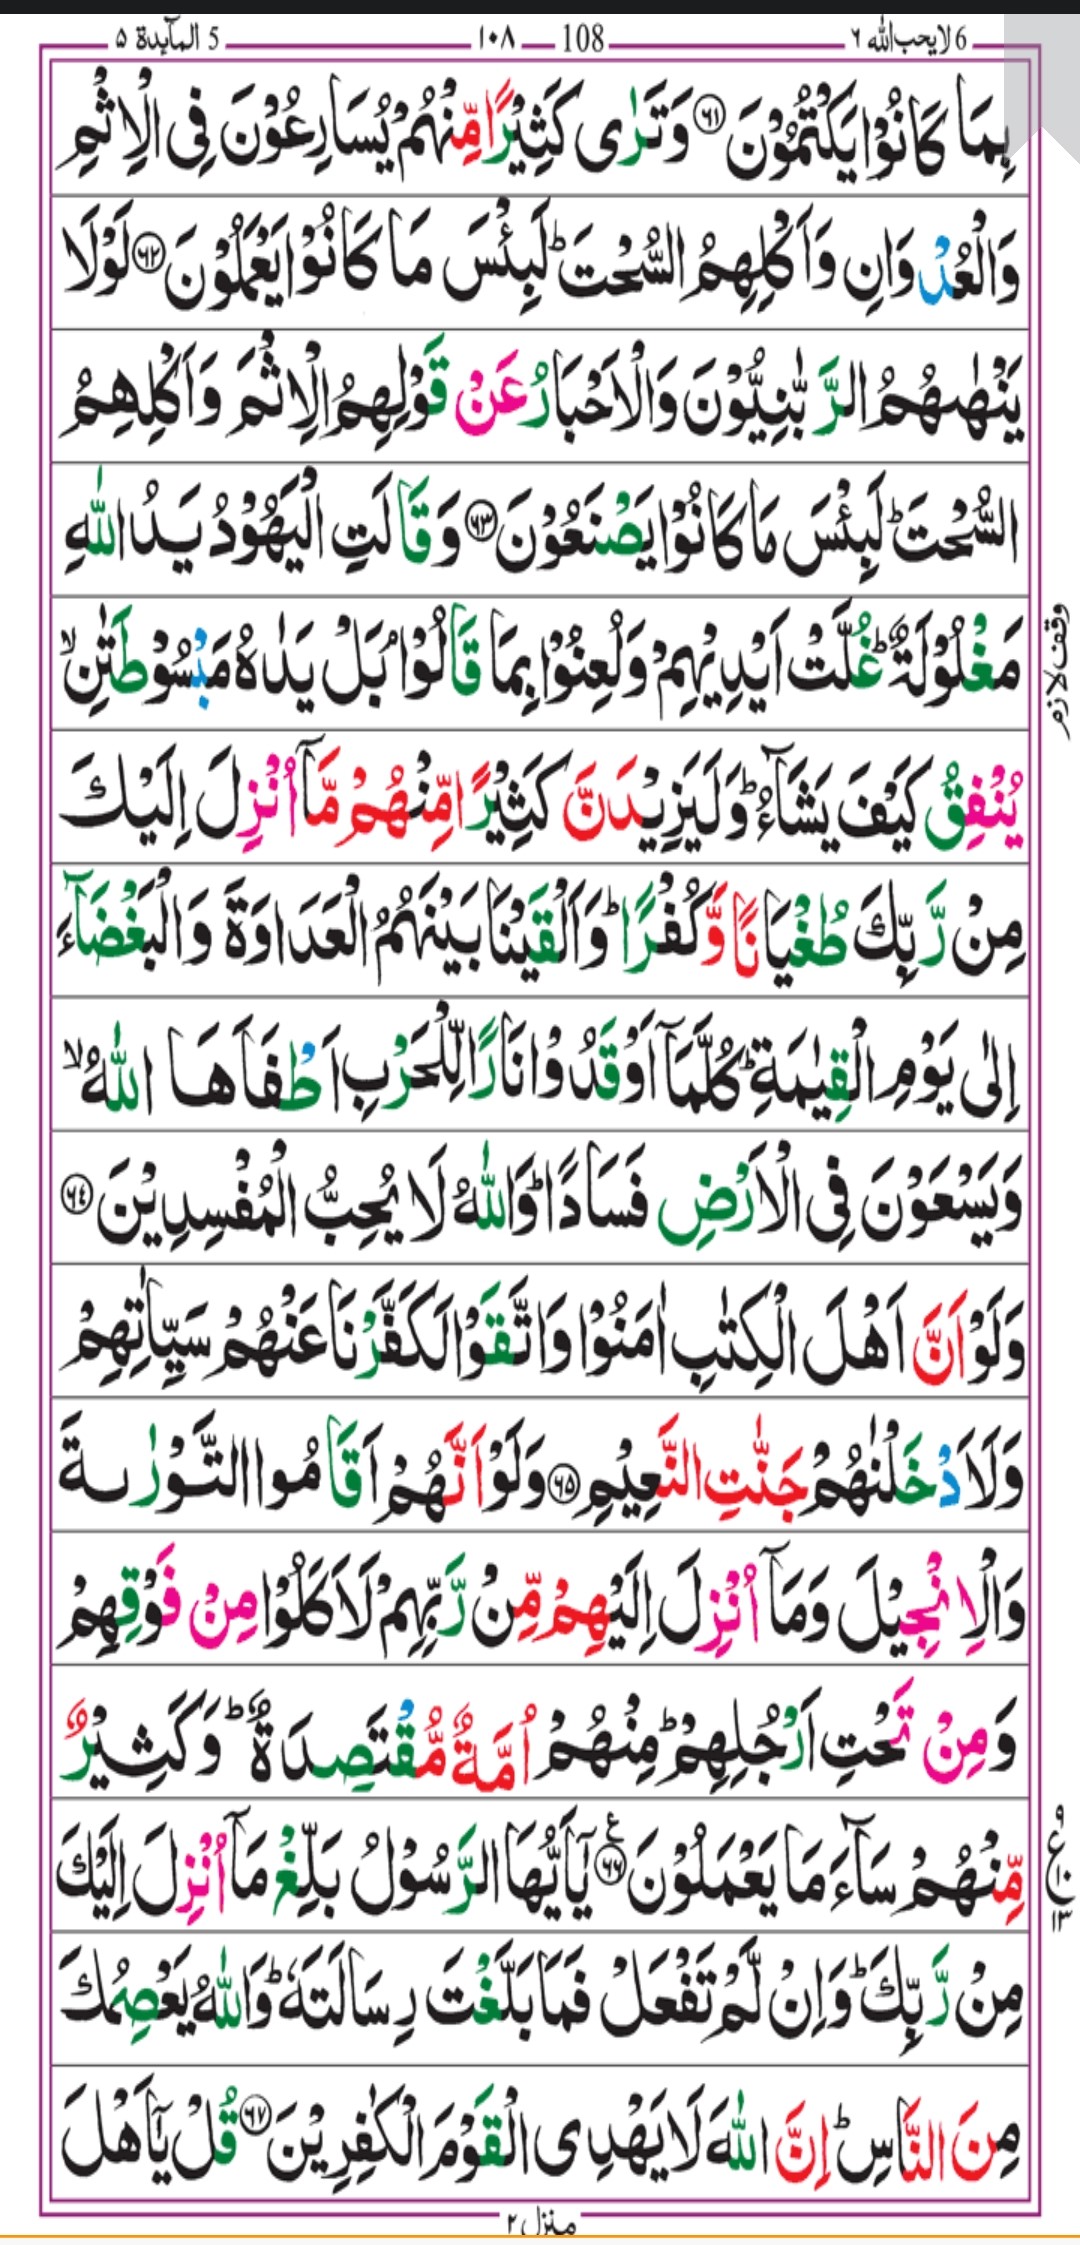 6 لا یحب اللہ ٦ 108 ١٠٨ 5 المآىدة ۵
بِمَا كَانُوْا يَكْتُمُوْنَ ﴿٦١﴾ وَتَرٰى كَثِيْرًا مِّنْهُمْ يُسَارِعُوْنَ فِى الْاِثْمِ
وَالْعُدْوَانِ وَاَكْلِهِمُ السُّحْتَ ؕ لَبِئْسَ مَا كَانُوْا يَعْمَلُوْنَ ﴿٦٢﴾ لَوْلَا
يَنْهٰىهُمُ الرَّبّٰنِيُّوْنَ وَالْاَحْبَارُ عَنْ قَوْلِهِمُ الْاِثْمَ وَاَكْلِهِمُ
السُّحْتَ ؕ لَبِئْسَ مَا كَانُوْا يَصْنَعُوْنَ ﴿٦٣﴾ وَقَالَتِ الْيَهُوْدُ يَدُ اللّٰهِ
مَغْلُوْلَةٌ ؕ غُلَّتْ اَيْدِيْهِمْ وَلُعِنُوْا بِمَا قَالُوْا ۘ بَلْ يَدٰهُ مَبْسُوْطَتٰنِ ۙ
وقف لازم
يُنْفِقُ كَيْفَ يَشَآءُ ؕ وَلَيَزِيْدَنَّ كَثِيْرًا مِّنْهُمْ مَّاۤ اُنْزِلَ اِلَيْكَ
مِنْ رَّبِّكَ طُغْيَانًا وَّكُفْرًا ؕ وَاَلْقَيْنَا بَيْنَهُمُ الْعَدَاوَةَ وَالْبَغْضَآءَ
اِلٰى يَوْمِ الْقِيٰمَةِ ؕ كُلَّمَاۤ اَوْقَدُوْا نَارًا لِّلْحَرْبِ اَطْفَاَهَا اللّٰهُ ۙ
وَيَسْعَوْنَ فِى الْاَرْضِ فَسَادًا ؕ وَاللّٰهُ لَا يُحِبُّ الْمُفْسِدِيْنَ ﴿٦٤﴾
وَلَوْ اَنَّ اَهْلَ الْكِتٰبِ اٰمَنُوْا وَاتَّقَوْا لَكَفَّرْنَا عَنْهُمْ سَيِّاٰتِهِمْ
وَلَاَدْخَلْنٰهُمْ جَنّٰتِ النَّعِيْمِ ﴿٦٥﴾ وَلَوْ اَنَّهُمْ اَقَامُوا التَّوْرٰىةَ
وَالْاِنْجِيْلَ وَمَاۤ اُنْزِلَ اِلَيْهِمْ مِّنْ رَّبِّهِمْ لَاَكَلُوْا مِنْ فَوْقِهِمْ
وَمِنْ تَحْتِ اَرْجُلِهِمْ ؕ مِنْهُمْ اُمَّةٌ مُّقْتَصِدَةٌ ؕ وَكَثِيْرٌ
مِّنْهُمْ سَآءَ مَا يَعْمَلُوْنَ ﴿٦٦﴾ يٰۤاَيُّهَا الرَّسُوْلُ بَلِّغْ مَاۤ اُنْزِلَ اِلَيْكَ
ع ١٣
مِنْ رَّبِّكَ ؕ وَاِنْ لَّمْ تَفْعَلْ فَمَا بَلَّغْتَ رِسَالَتَهٗ ؕ وَاللّٰهُ يَعْصِمُكَ
مِنَ النَّاسِ ؕ اِنَّ اللّٰهَ لَا يَهْدِى الْقَوْمَ الْكٰفِرِيْنَ ﴿٦٧﴾ قُلْ يٰۤاَهْلَ
منزل ٢